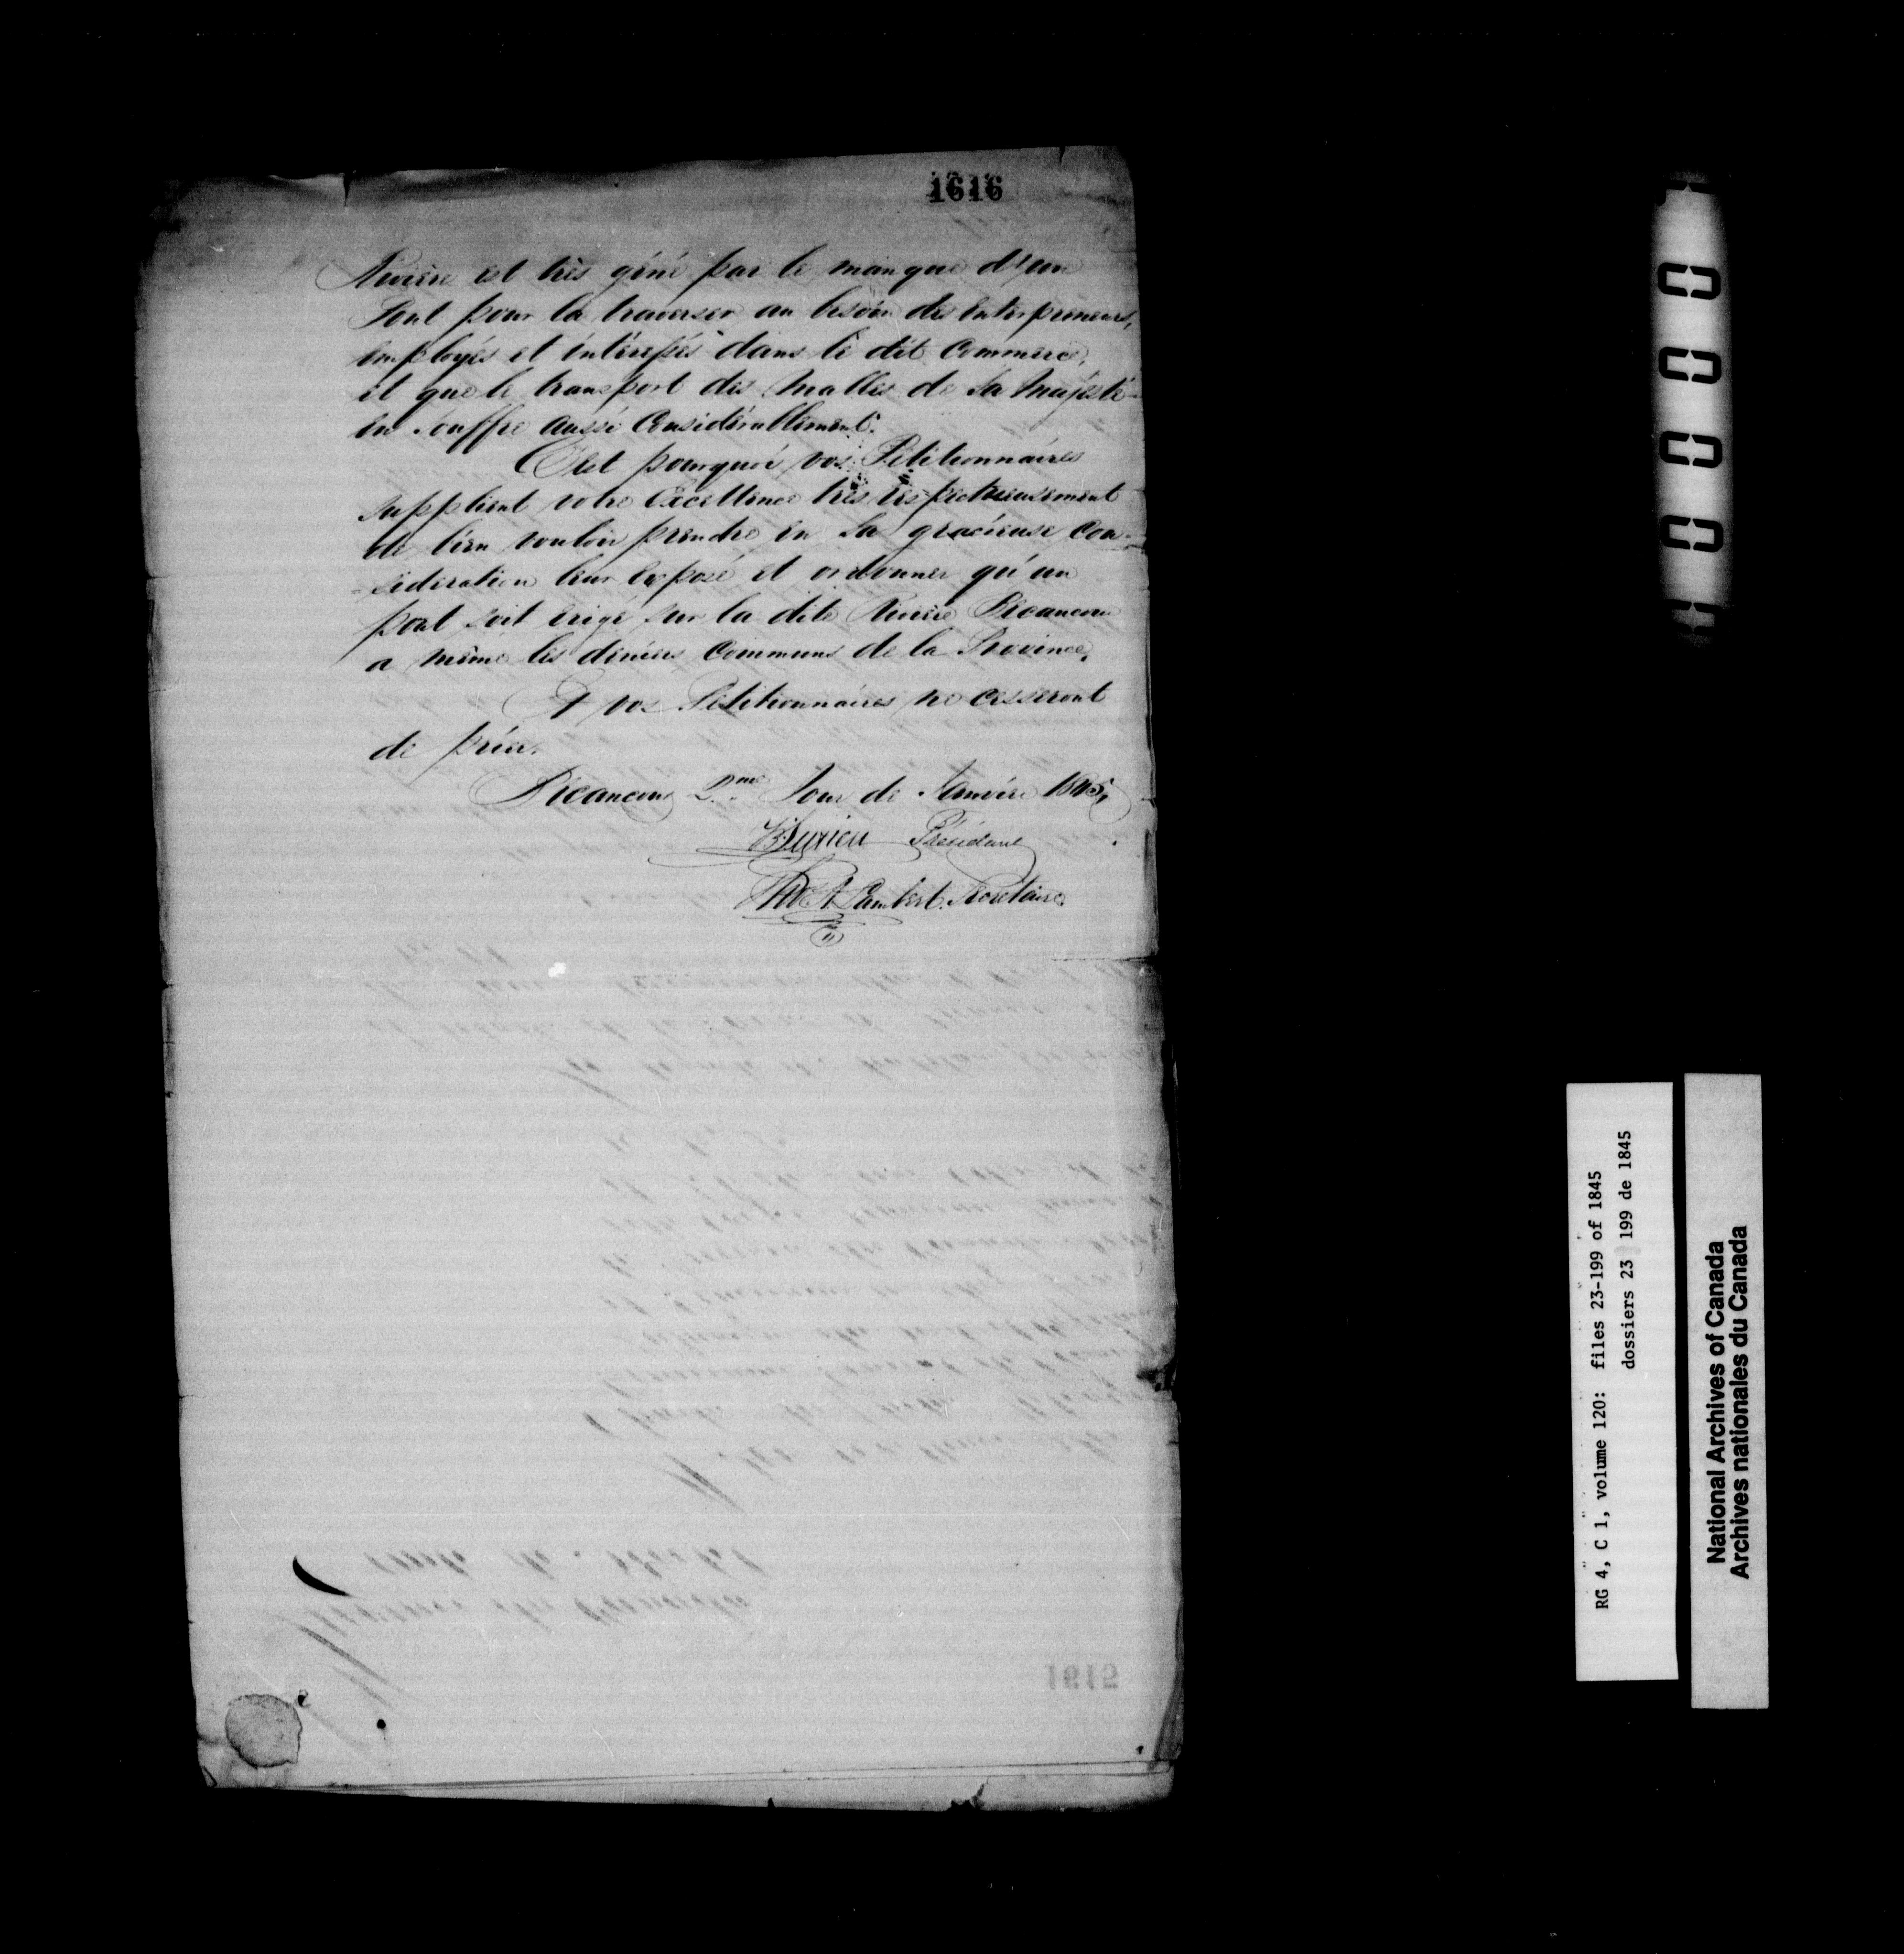 1616
Rivière est très gêné par le manque d'un
Pont pour la traverser au besoin des Enterpreneurs,
Employés et intéressés dans le dit Commerce,
et que le transport des Malles de Sa Majesté
en souffre aussi Considérablement.
C'est pourquoi vos Pétitionnaires
supplient votre Excellence très respectueusement
de bien vouloir prendre en Sa gracieuse Con-
-sideration leur Exposé et ordonner qu'un
pont soit erigé sur la dite Rivière Bécancour
a même les déniers Communs de la Province,
Et vos Pétitionnaires ne cesseront
de prier.
Bécancour 2.me Jour de Janvier 1845,
Président
Lambert. Secrétaire
1615
RG 4, C 1, volume 120: files 23-199 of 1845
dossiers 23 199 de 1845
National Archives of Canada
Archives nationales du Canada